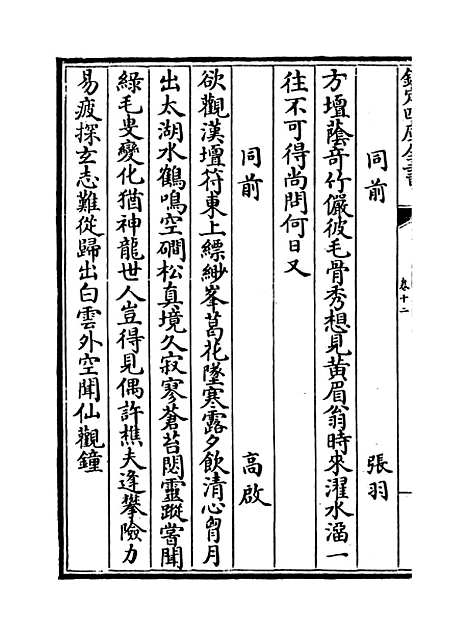 欽定四庫全書
卷十二
同前　張羽
方壇蔭竒竹儼彼毛骨秀想見黄眉翁時來濯水湢一
往不可得尚問何日又
同前　高啟
欲觀漢壇符東上縹緲峯葛花墜寒露夕飲清心胷月
出太湖水鶴鳴空磵松真境久寂寥蒼苔閟靈蹤嘗聞
綠毛叟變化猶神龍世人豈得見偶許樵夫逢攀險力
易疲探玄志難從歸出白雲外空聞仙觀鐘